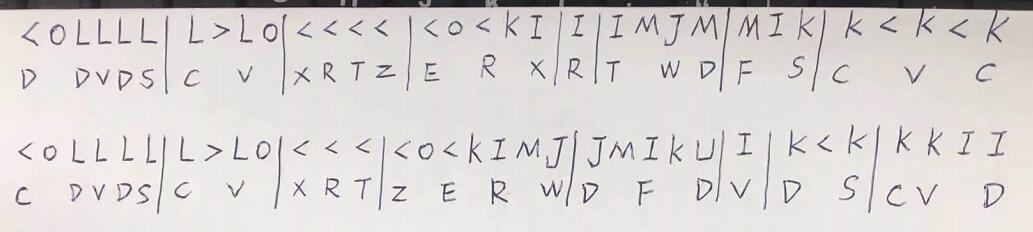 < O L L L L | L > L O | < < < < | < O < K I | I | I M J M | M I K | K < K < K
D D V D S | C V | X R T Z | E R X | R | T W D | F S | C V C
< O L L L L | L > L O | < < < | < O < K I M J | J M I K U | I | K < K | K K I I
C D V D S | C V | X R T | Z E R W | D F D | V | D S | C V D